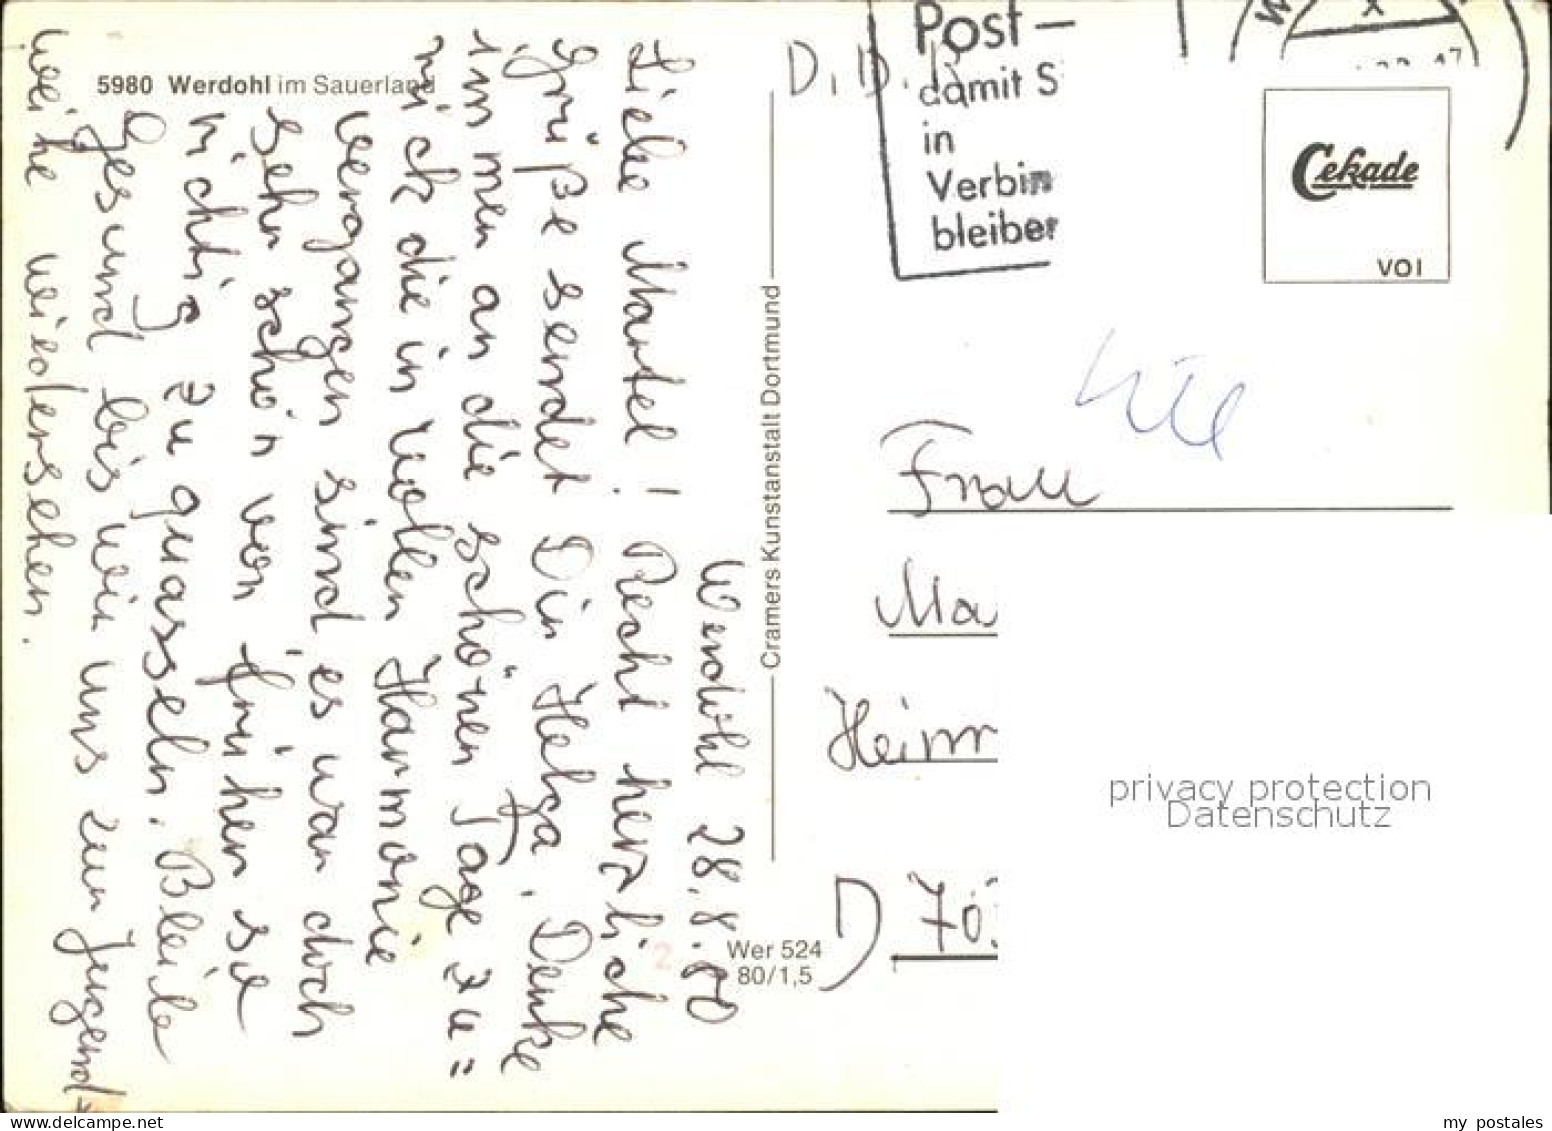 5980 Werdohl im Sauerland
Werdohl 28.8.80
Liebe Martel! Recht herzliche
Grüße sendet Dir Helga. Denke
immer an die schönen Tage zu=
rück die in vollen Harmonie
vergangen sind es war doch
sehr schön von früher so
richtig zu quasseln. Bleibe
gesund bis wir uns zur Jugend-
weihe wiedersehen.
Cramers Kunstanstalt Dortmund
Wer 524
80/1,5
2
Post-
damit S
in
Verbin
bleiben
Cekade
VOI
Frau
Ma
Heinr
D 70
privacy protection
Datenschutz
www.delcampe.net
my postales